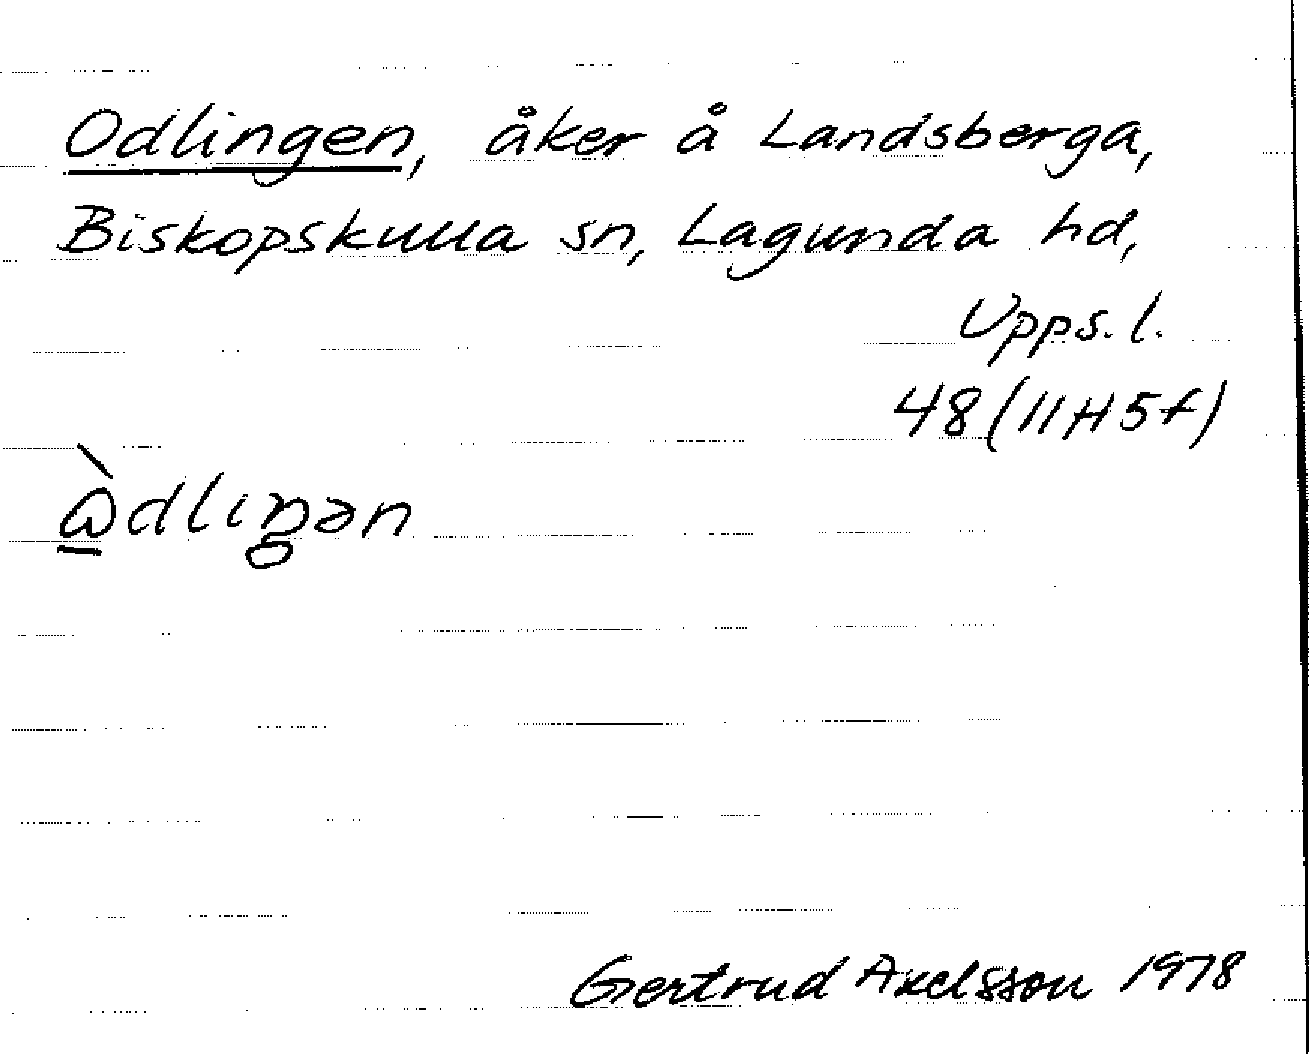 Odlingen, åker å Landsberga,
Biskopskulla sn, Lagunda hd,
Upps. l.
48 (11H5f)
Gertrud Axelsson 1978